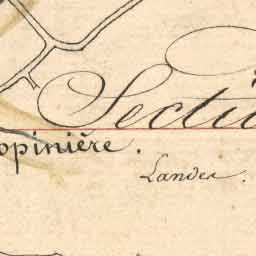 Sectio
opinière.
Landes.